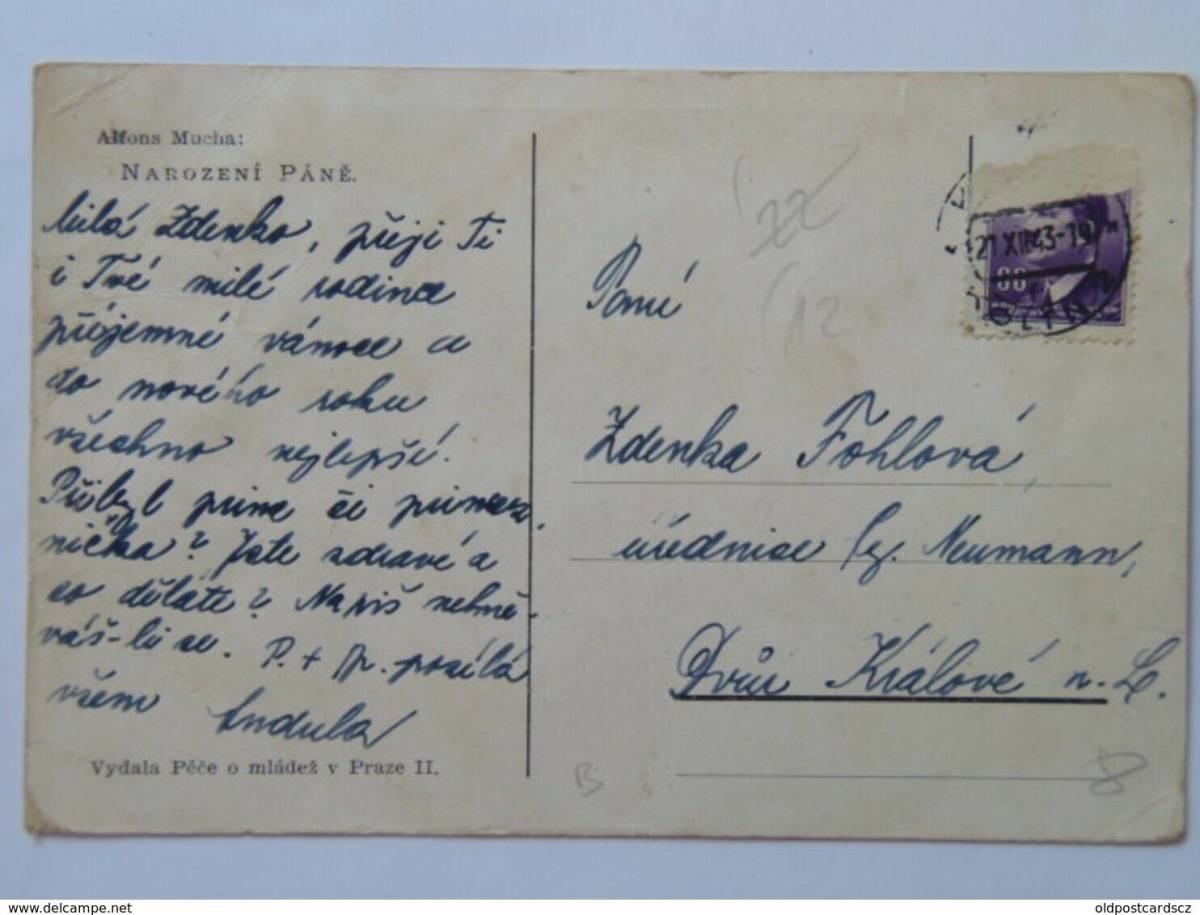 Alfons Mucha:
NAROZENÍ PÁNĚ.
Milá Zdenko, přeji Ti
i Tvé milé rodince
příjemné vánoce a
do nového roku
všechno nejlepší.
Přibyl princ či princez-
nička? Jste zdravé a
co děláte? Napiš nehně-
váš-li se. P. + pozílá
všem Andula
Vydala Péče o mládež v Praze II.
22
12
Paní
Zdenka Fohlová,
úřednice fy. Neumann,
Dvůr Králové n. L.
21 XII 43-19
B
oldpostcards.cz
oldpostcardscz